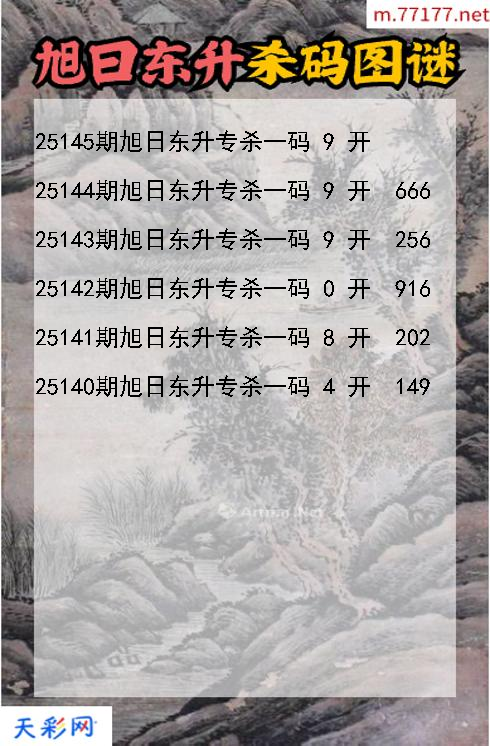 m.77177.net
旭日东升杀码图谜
25145期旭日东升专杀一码 9 开
25144期旭日东升专杀一码 9 开 666
25143期旭日东升专杀一码 9 开 256
25142期旭日东升专杀一码 0 开 916
25141期旭日东升专杀一码 8 开 202
25140期旭日东升专杀一码 4 开 149
天彩网